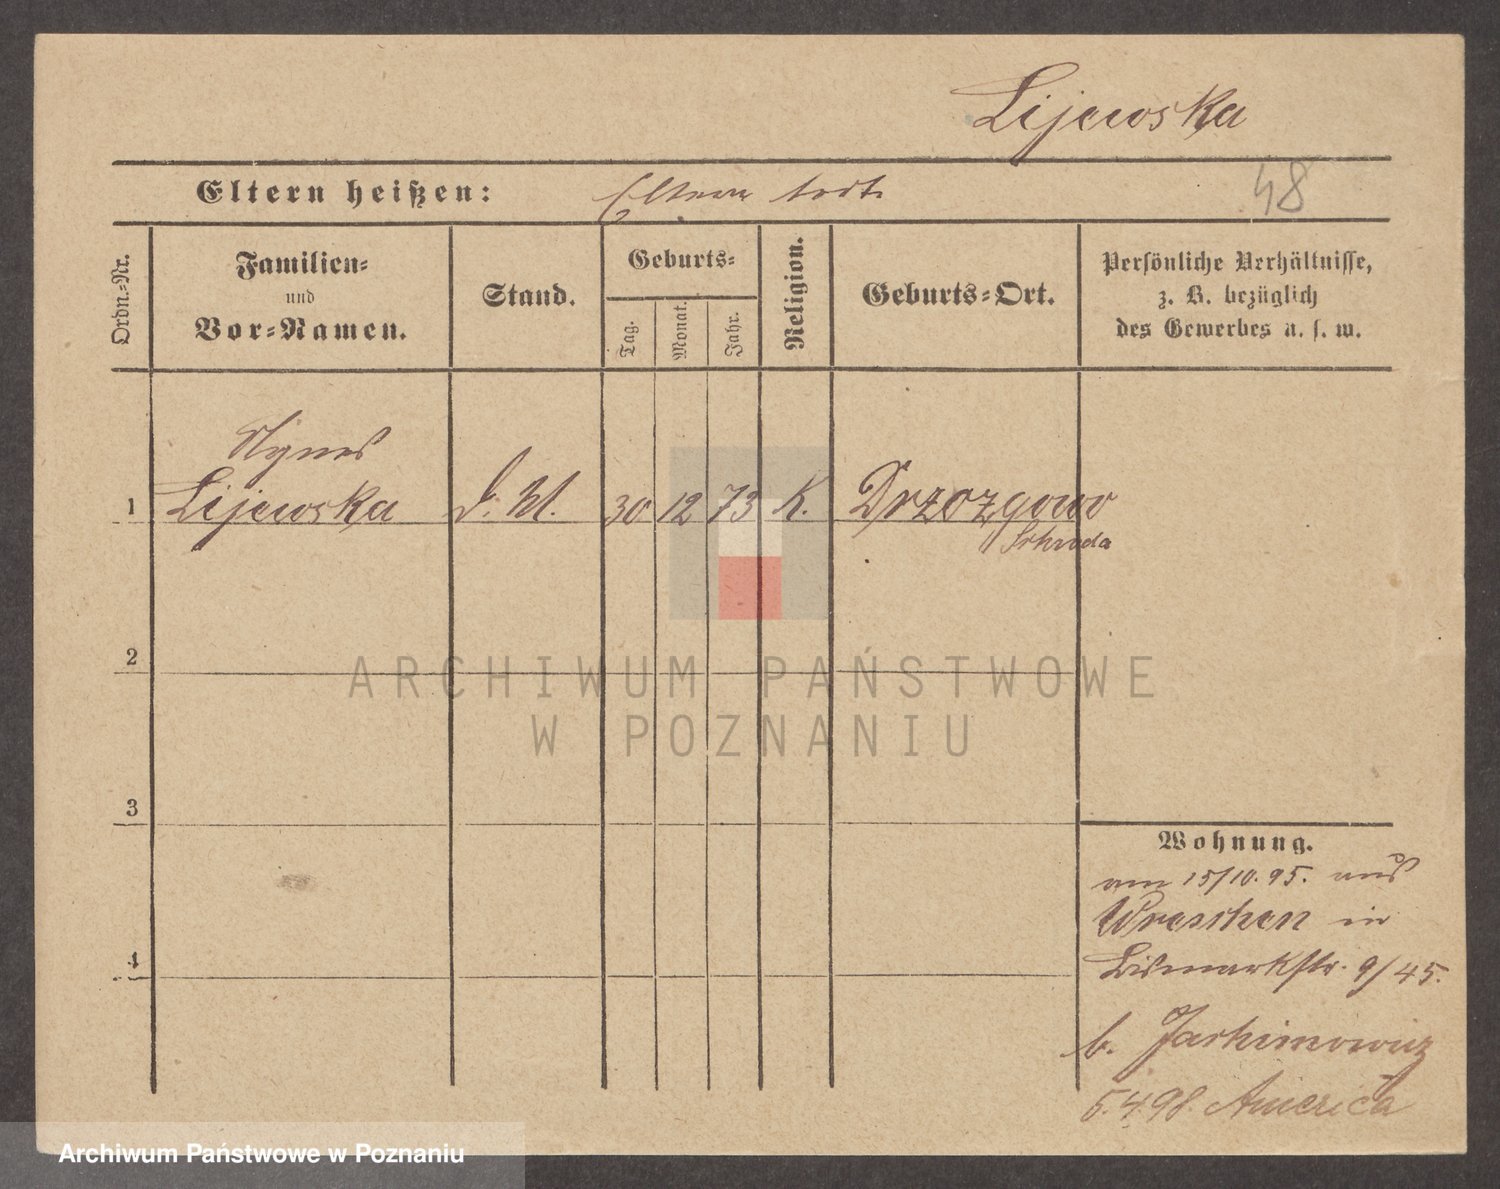 Lijewska
Eltern heißen: Eltern todt.
48
Ordn.-Nr.
Familien-
und
Vor-Namen.
Stand.
Geburts-
Tag.
Monat.
Jahr.
Religion.
Geburts-Ort.
Persönliche Verhältnisse,
z. B. bezüglich
des Gewerbes u. s. w.
Agnes
1 Lijewska d. M. 30 12 73 K. Drzozgowo
Schroda
2
3
4
ARCHIWUM PAŃSTWOWE
W POZNANIU
Wohnung.
am 15/10.95. aus
Wreschen in
Bismarkstr. 9/45.
b. Jachimowicz
5.4.98. America
Archiwum Państwowe w Poznaniu